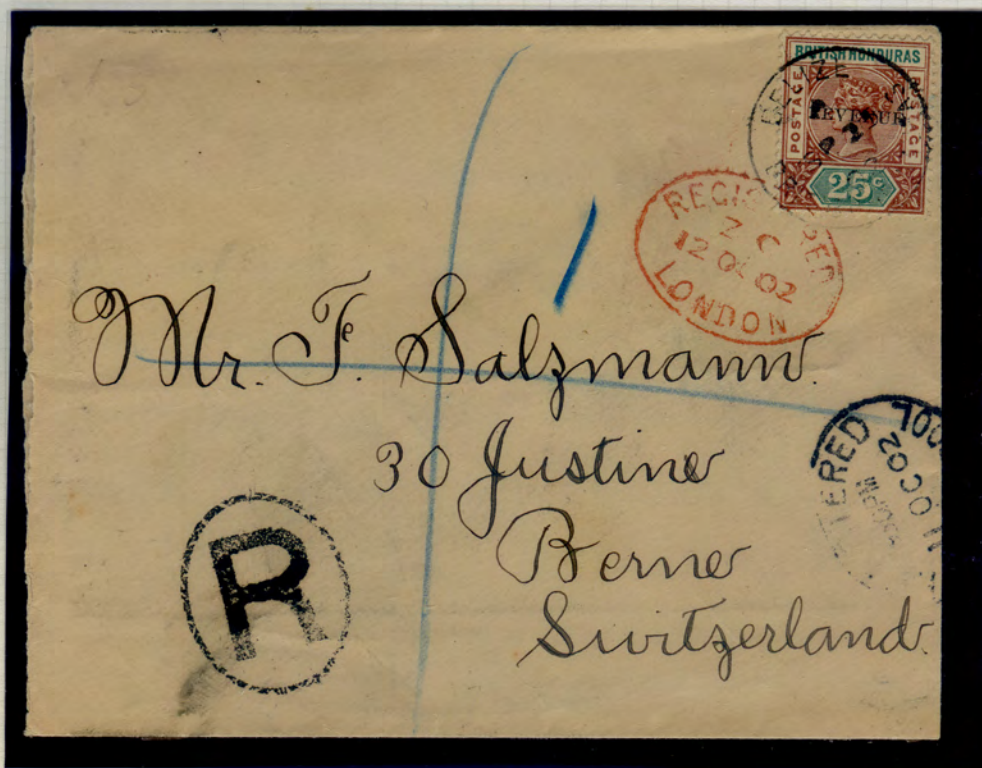 BRITISH HONDURAS
POSTAGE
POSTAGE
REVENUE
25c
BELIZE
REGISTERED
12 OC 02
LONDON
Mr. F. Salzmann.
30 Justine
Berne
Switzerland.
R
TERED
OOL
11 OC 02